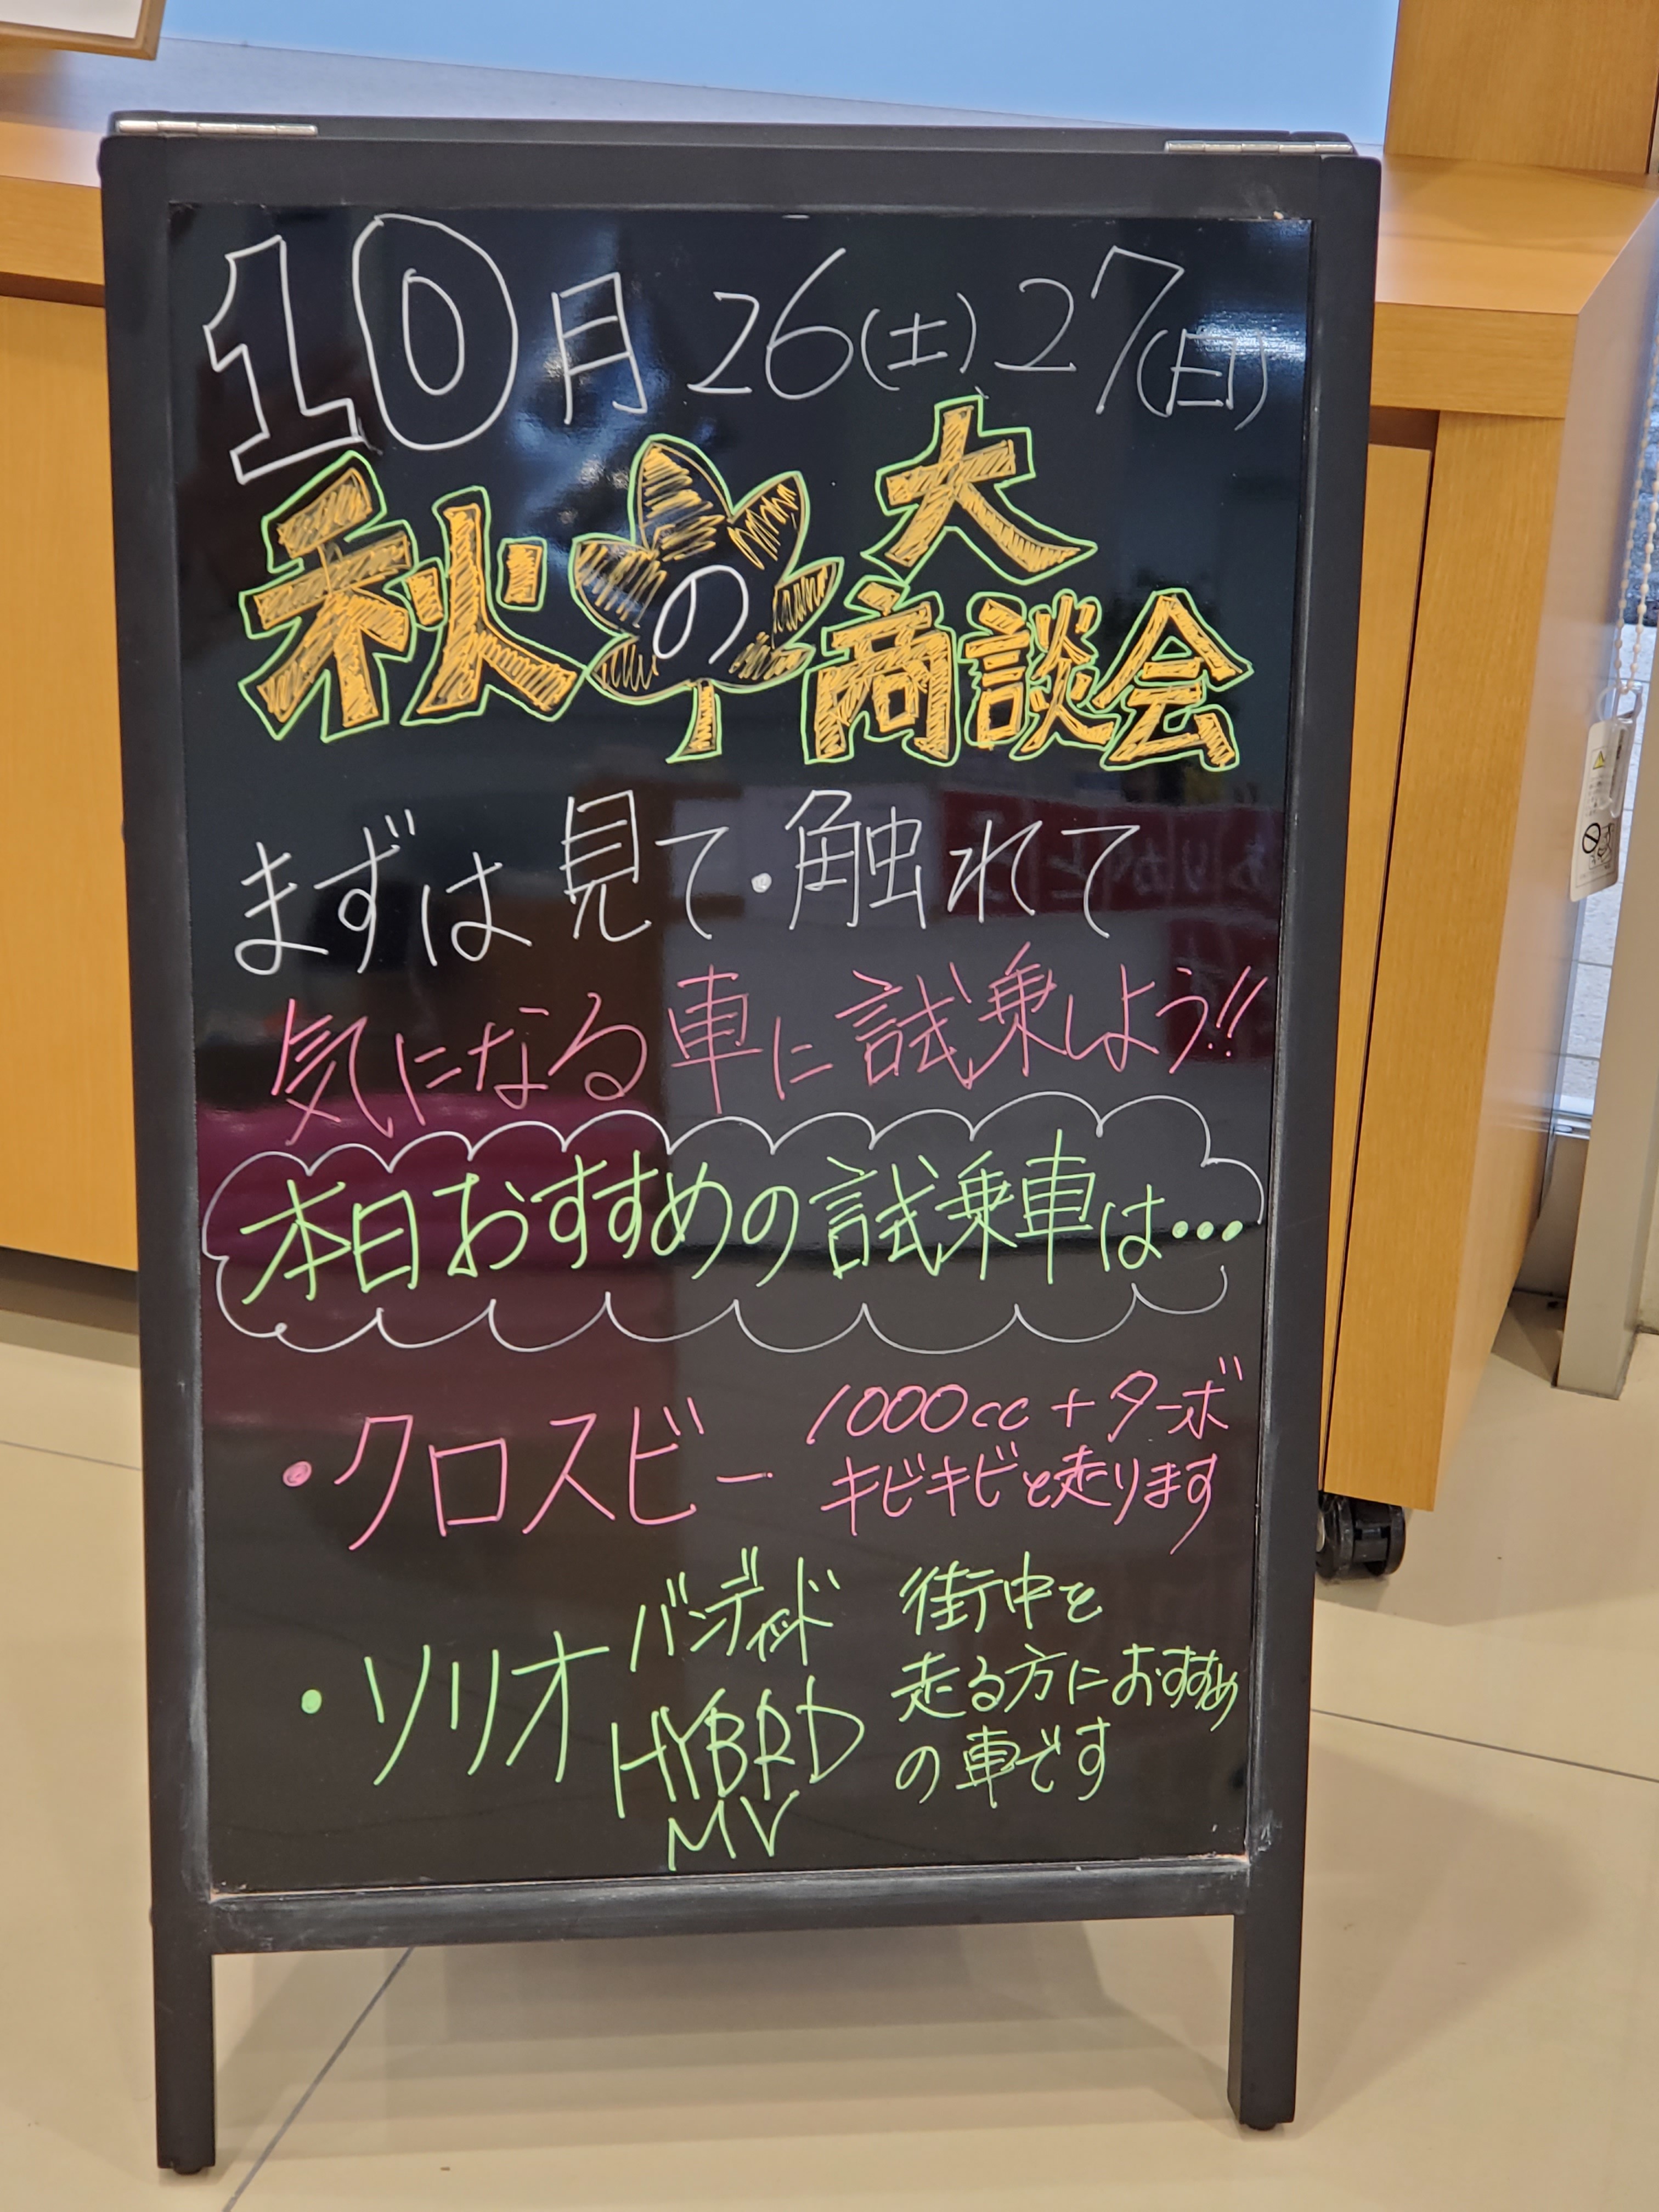 10月 26(土) 27(日)
秋の大商談会
まずは見て・触れて
気になる車に試乗しよう!!
本日おすすめの試乗車は…
・クロスビー 1000cc+ターボ
キビキビと走ります
・ソリオ バンディット
HYBRD
MV
街中を
走る方におすすめ
の車です